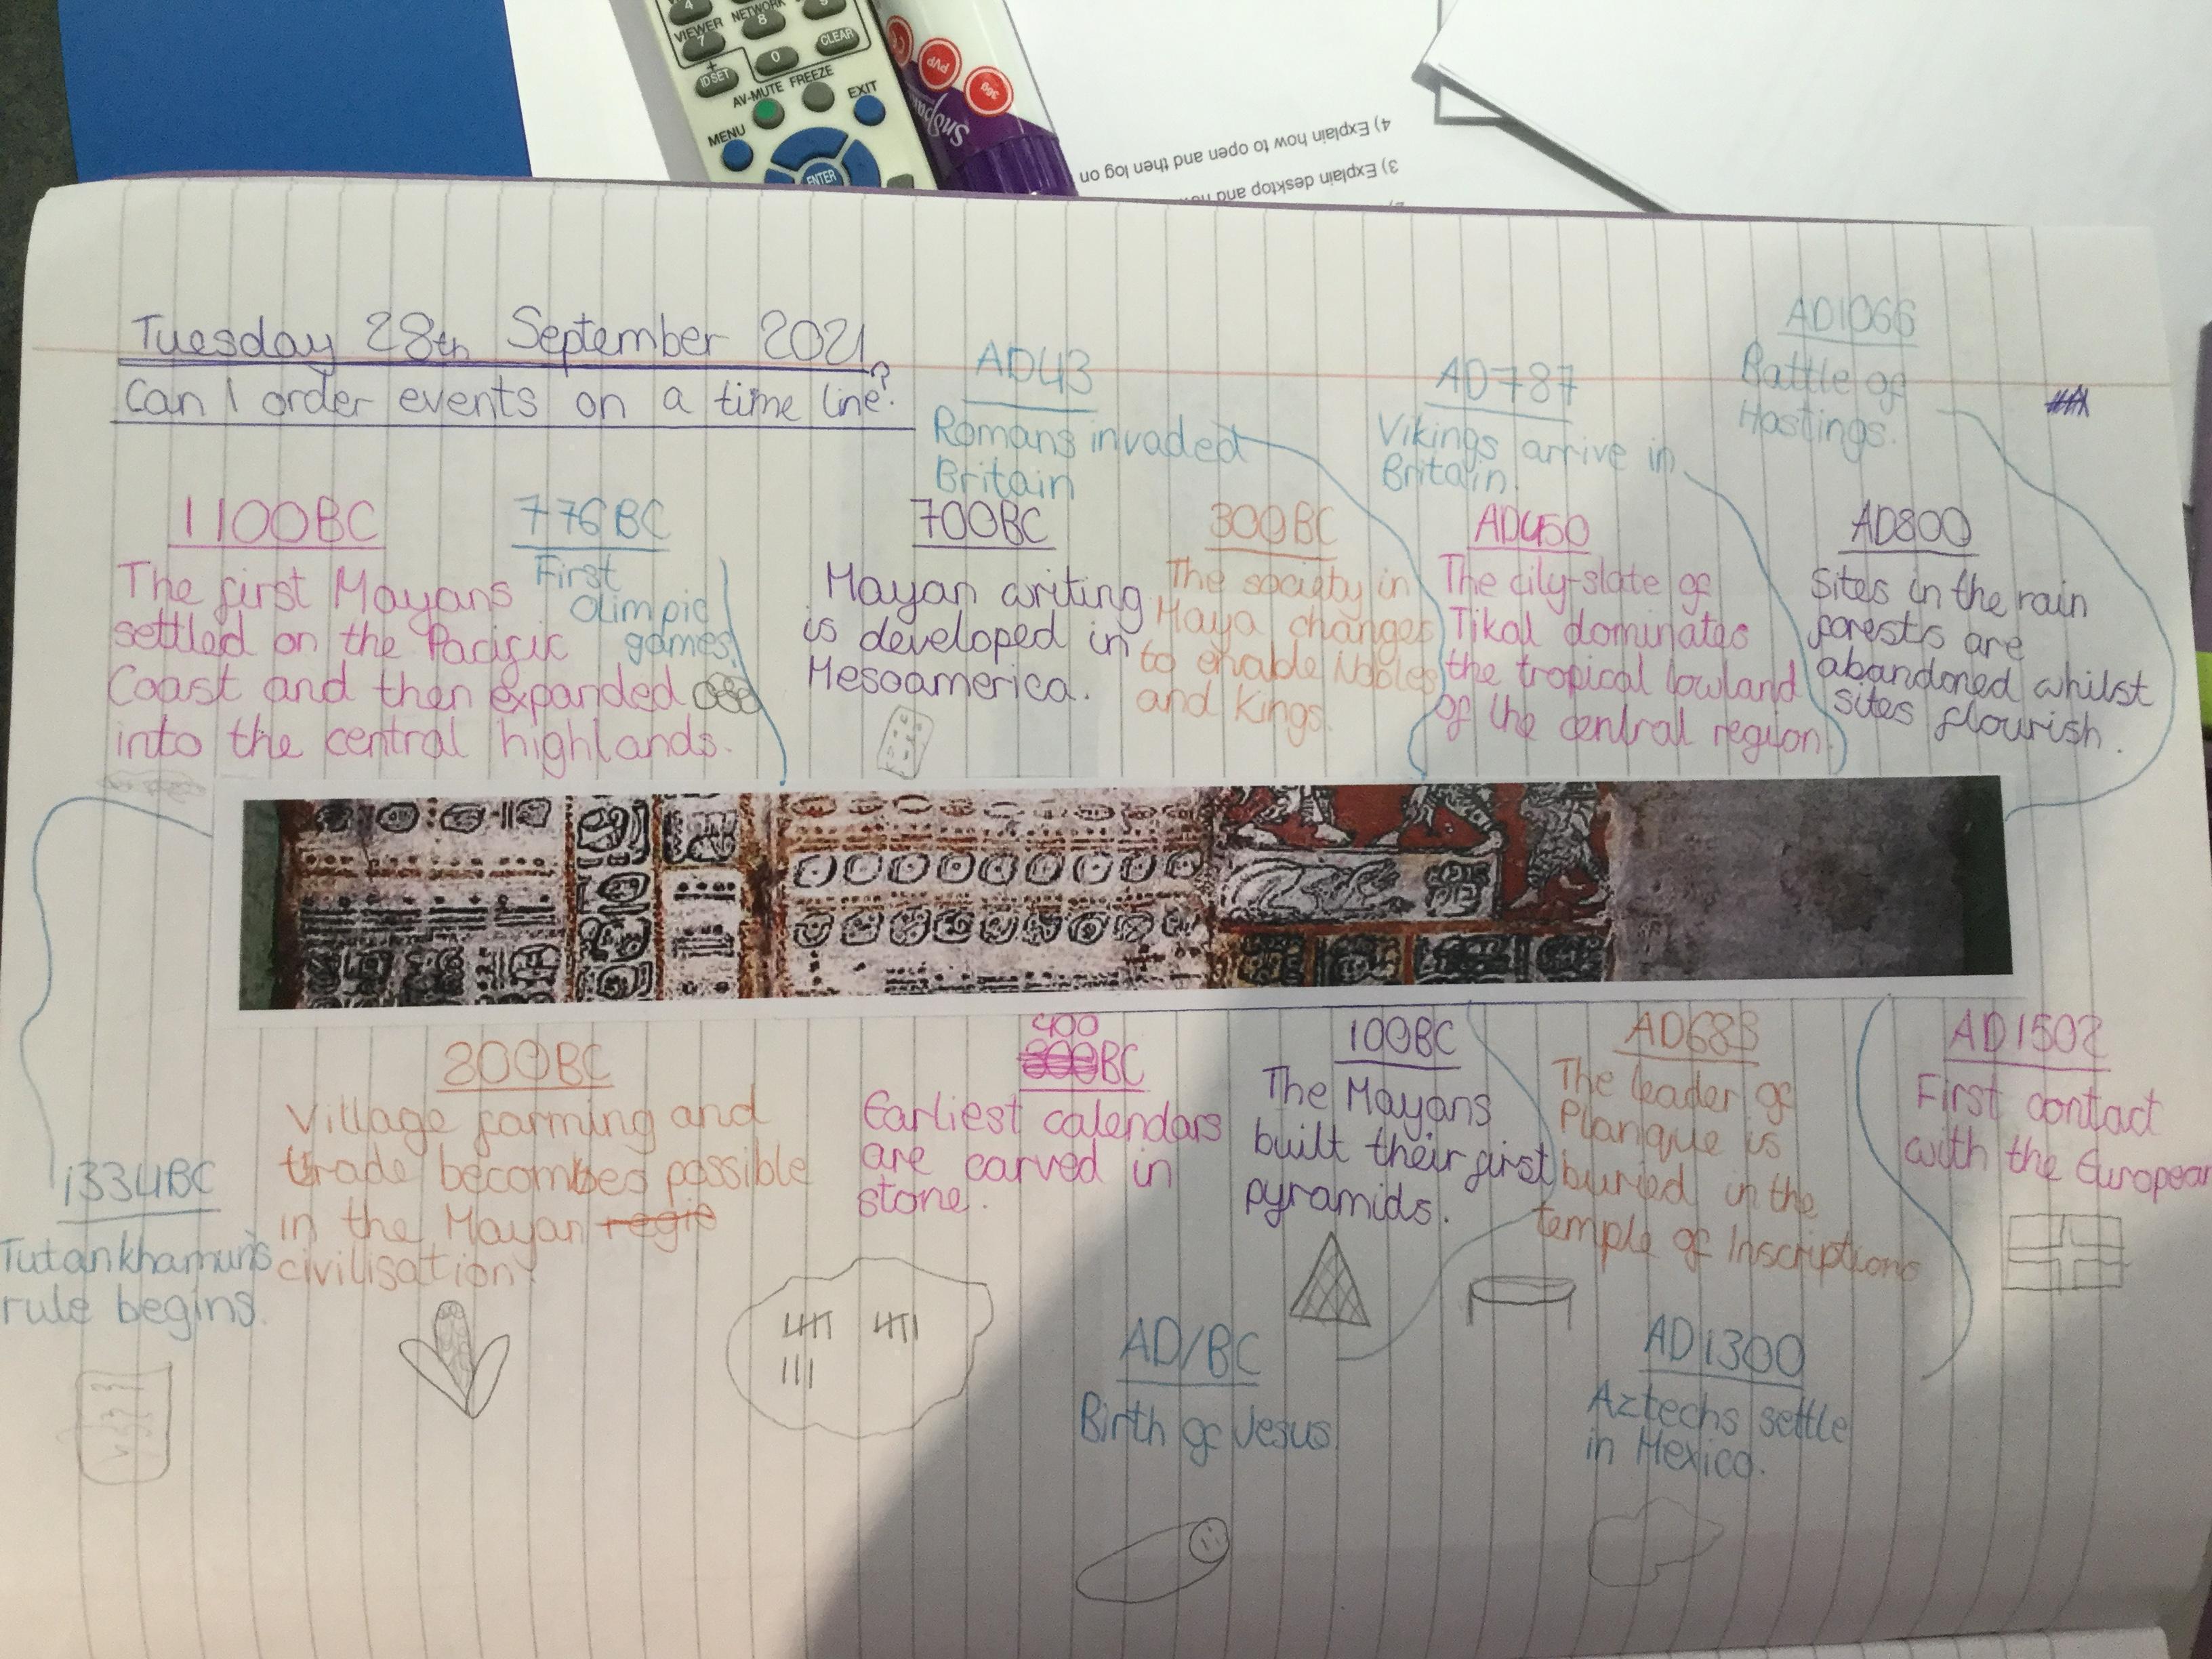 4
VIEWER
NETWORK
7
8
9
0
CLEAR
+
ID SET
AV-MUTE
FREEZE
EXIT
MENU
ENTER
PVP
36g
4) Explain how to open and then log on
3) Explain desktop and
Tuesday 28th September 2021
Can I order events on a time line?
AD43
Romans invaded
Britain
AD787
Vikings arrive in
Britain.
AD1066
Battle of
Hastings.
1100BC
The first Mayans
settled on the Pacific
Coast and then expanded
into the central highlands.
776BC
First
Olimpic
games.
700BC
Mayan writing
is developed in
Mesoamerica.
300BC
The society in
Maya changes
to enable Nobles
and Kings.
AD450
The city-state of
Tikal dominates
the tropical lowland
of the central region.
AD800
Sites in the rain
forests are
abandoned whilst
sites flourish.
1334BC
Tutankhamun's
rule begins.
800BC
Village farming and
trade becomes possible
in the Mayan regio
civilisation.
400
300BC
Earliest calendars
are carved in
stone.
100BC
The Mayans
built their first
pyramids.
AD683
The leader of
Planque is
buried in the
temple of Inscriptions
AD1502
First contact
with the European
AD/BC
Birth of Jesus.
AD1300
Aztechs settle
in Mexico.